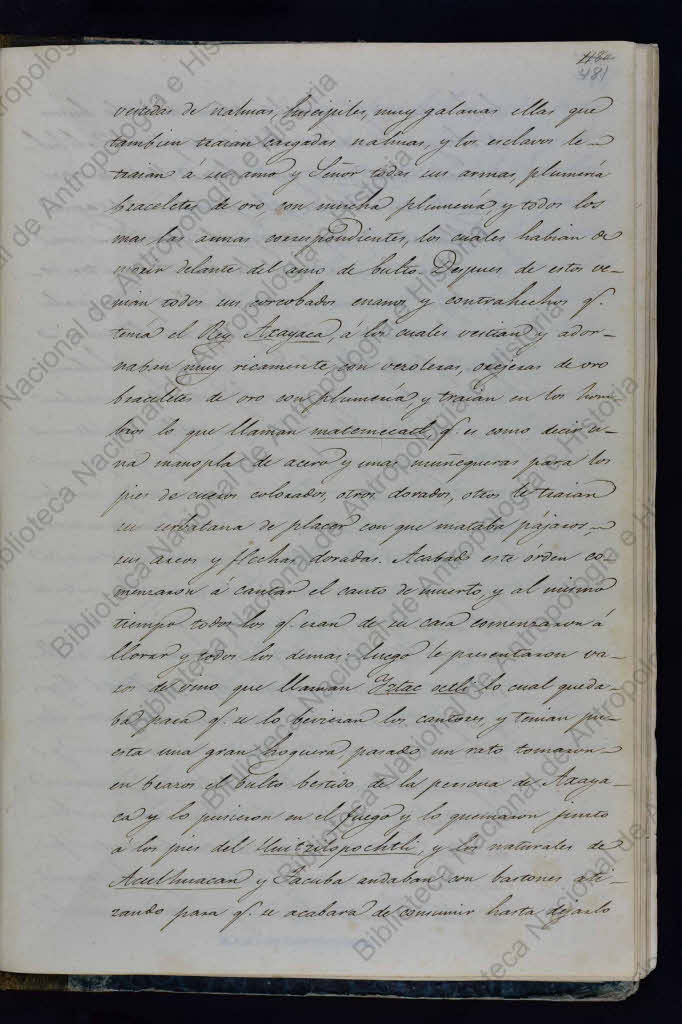 480
481
vestidas de nahuas, hueipiles, muy galanas ellas que
tambien traian cargadas nahuas, y los esclavos le
traian á su amo y Señor todas sus armas, plumería
braceletes de oro, con mucha plumería, y todos los
mas las armas correspondientes, los cuales habian de
morir delante del amo de bulto. Despues de estos ve-
nian todos sus corcobados enanos, y contrahechos q.
tenia el Rey Axayaca, á los cuales vestian y ador-
naban muy ricamente, con vezoleras, orejeras de oro
braceletes de oro con plumería, y traian en los hom-
bros lo que llaman matemecatl q. es como decir u-
na manopla de acero y unas muñequeras para los
pies de cueros colorados, otros dorados, otros le traian
su cerbatana de placer con que mataba pájaros,
sus arcos y flechas doradas. Acabado este órden co-
menzaron á cantar el canto de muerto, y al mismo
tiempo todos los q. eran de su casa comenzaron á
llorar y todos los demas: luego le presentaron va-
sos de vino que llaman Yztac octli lo cual queda-
ba para q. se lo bevieran los cantores, y tenian pu-
esta una gran hoguera, pasado un rato tomaron
en brazos el bulto bestido de la persona de Axaya-
ca y lo pusieron en el fuego y lo quemaron junto
á los pies del Huitzilopochtli, y los naturales de
Aculhuacan y Tacuba andaban con bastones ati-
zando para q. se acabara de consumir hasta dejarlo
Biblioteca Nacional de Antropología e Historia